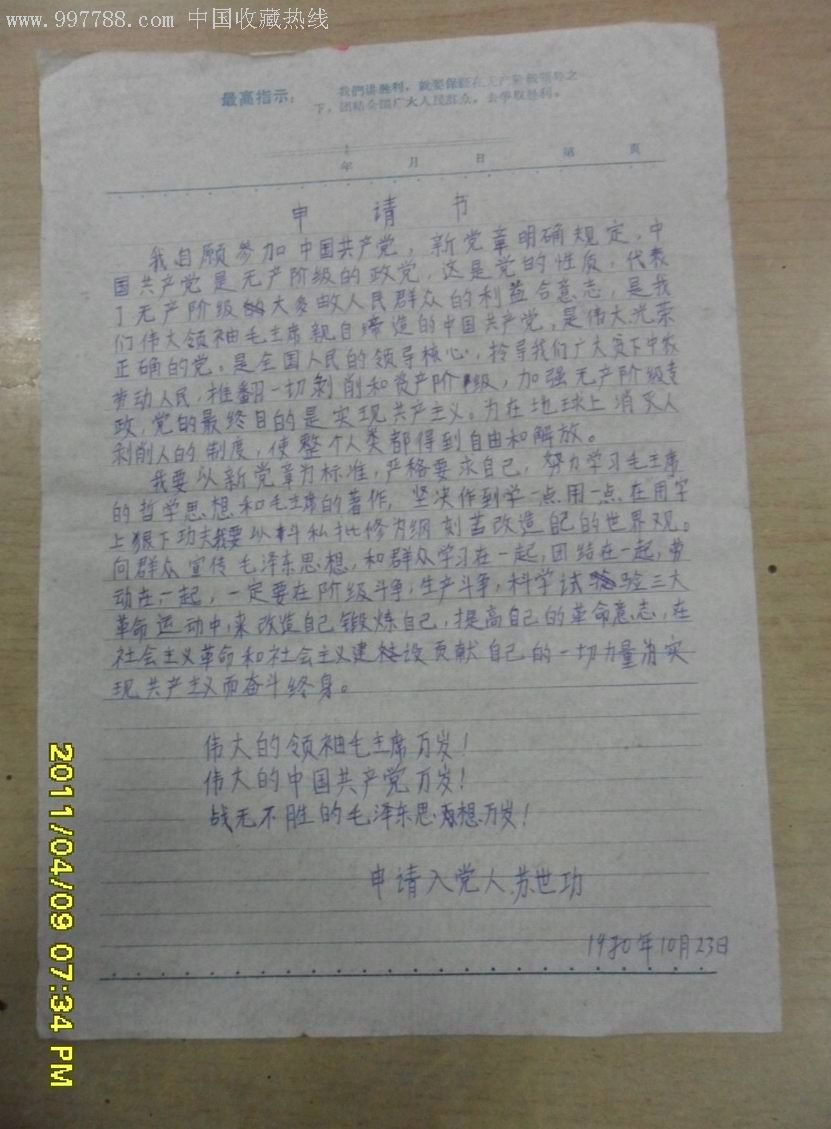 www.997788.com 中国收藏热线
最高指示：
我們讲胜利，就要保証在无产阶級領导之
下，团結全国广大人民群众，去爭取胜利。
年 月 日 第 頁
申 请 书
我自愿参加中国共产党，新党章明确规定，中
国共产党是无产阶级的政党，这是党的性质，代表
了无产阶级大多人民群众的利益合意志，是我
们伟大领袖毛主席亲自缔造的中国共产党，是伟大光荣
正确的党，是全国人民的领导核心，领导我们广大贫下中农
劳动人民，推翻一切剥削和资产阶级，加强无产阶级专
政，党的最终目的是实现共产主义。为在地球上消灭人
剥削人的制度，使整个人类都得到自由和解放。
我要以新党章为标准，严格要求自己，努力学习毛主席
的哲学思想和毛主席的著作，坚决作到学一点用一点在用字
上狠下功夫我要以斗私批修为纲刻苦改造自己的世界观。
向群众宣传毛泽东思想，和群众学习在一起，团结在一起，劳
动在一起，一定要在阶级斗争，生产斗争，科学试验三大
革命运动中，来改造自己锻炼自己，提高自己的革命意志，在
社会主义革命和社会主义建设贡献自己的一切力量为实
现共产主义而奋斗终身。
伟大的领袖毛主席万岁！
伟大的中国共产党万岁！
战无不胜的毛泽东思想万岁！
申请入党人 苏世功
1970年10月23日
2011/04/09 07:34 PM